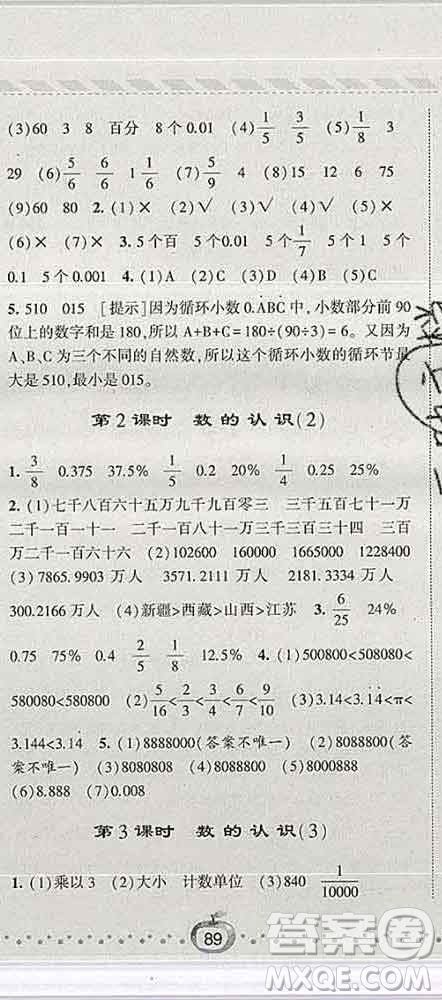 (3)60 3 8 百分 8个0.01 (4)1/5 3/5 (5)1/8 3
29 (6)5/6 6/6 1 1/6 (7)5/9 4 (8)15 12 6 75
(9)60 80 2.(1)× (2)√ (3)√ (4)√ (5)×
(6)× (7)× 3.5个15 5个1/7 5个1 5个
0.1 5个0.001 4.(1)A (2)B (3)C (4)D (5)C
5. 510 015 [提示]因为循环小数0.ȦBĊ中,小数部分前90
位上的数字和是180,所以A+B+C=180÷(90÷3)=6。又因为
A、B、C为三个不同的自然数,所以这个循环小数的循环节最
大是510,最小是015。
第2课时 数的认识(2)
1. 3/8 0.375 37.5% 1/5 0.2 20% 1/4 0.25 25%
2.(1)七千八百六十五万九千九百零三 三千五百七十一万
二千一百一十一 二千八百八十八万三千三百三十四 三百
万二千一百六十六 (2)102600 160000 1665000 1228400
(3)7865.9903万人 3571.2111万人 2888.3334万人
300.2166万人 (4)新疆>西藏>山西>江苏 3. 6/25 24%
0.75 75% 0.4 2/5 1/8 12.5% 4.(1)500800<508080<
580080<580800 (2)5/16<2/9<6/8<9/10 (3)3.14<3.1̇4̇<π<
3.144<3.4̇ 5.(1)8888000(答案不唯一) (2)8088800(答
案不唯一) (3)8080808 (4)8088888 (5)8000888
(6)8.888 (7)0.008
第3课时 数的认识(3)
1.(1)乘以3 (2)大小 计数单位 (3)840 1/10000
89
答案圈
MXQE.COM